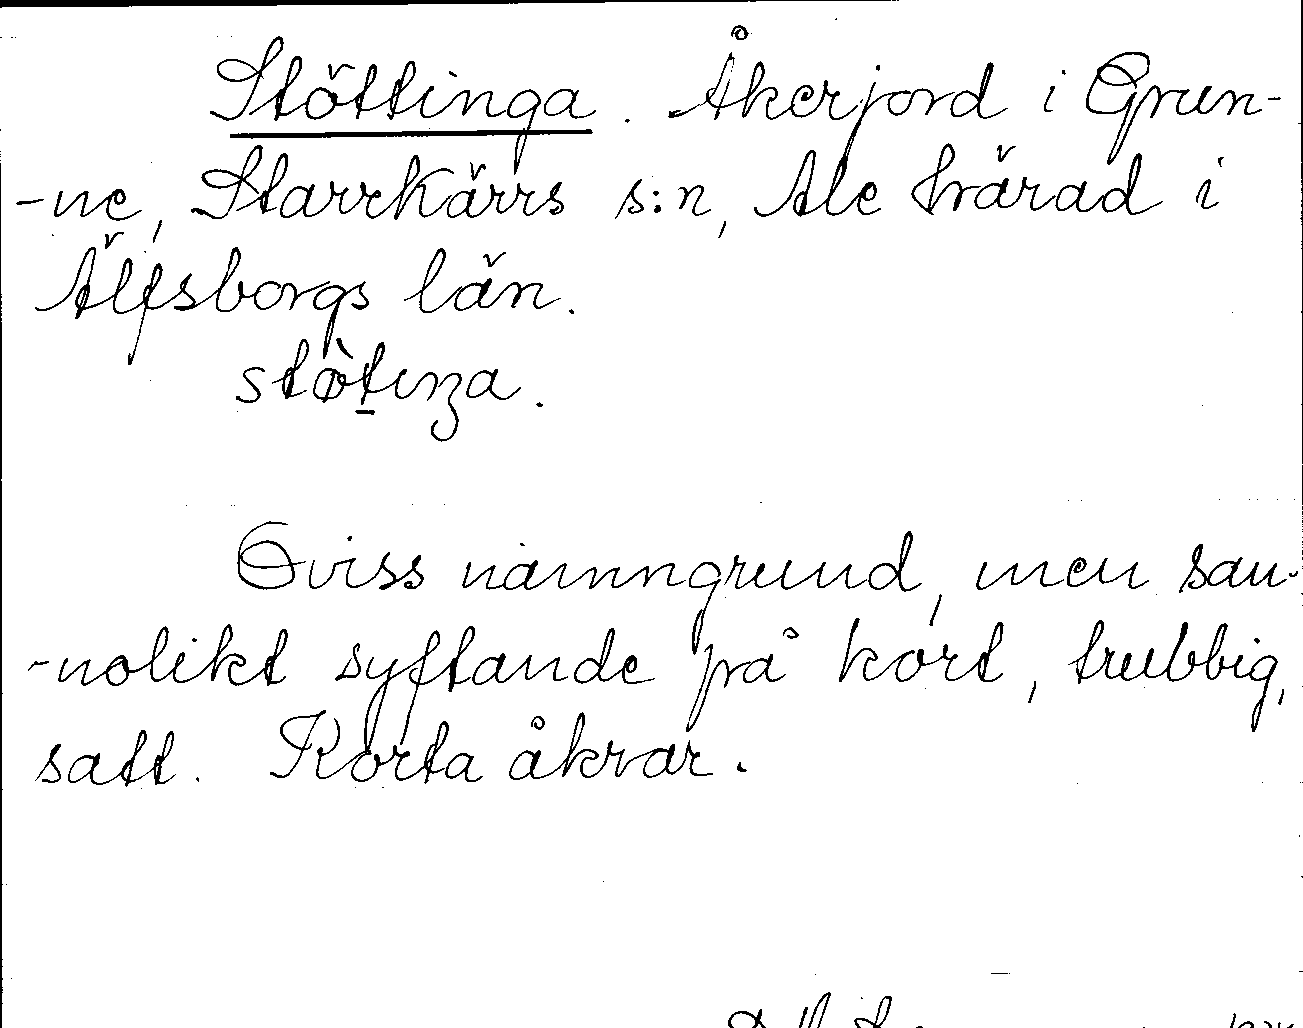 Stöttinga. Åkerjord i Grun-
-ne, Starrkärrs s:n, Ale härad i
Älfsborgs län.
stö̀tiŋa.
Oviss namngrund, men san-
-nolikt syftande på kort, trubbig,
satt. Korta åkrar.